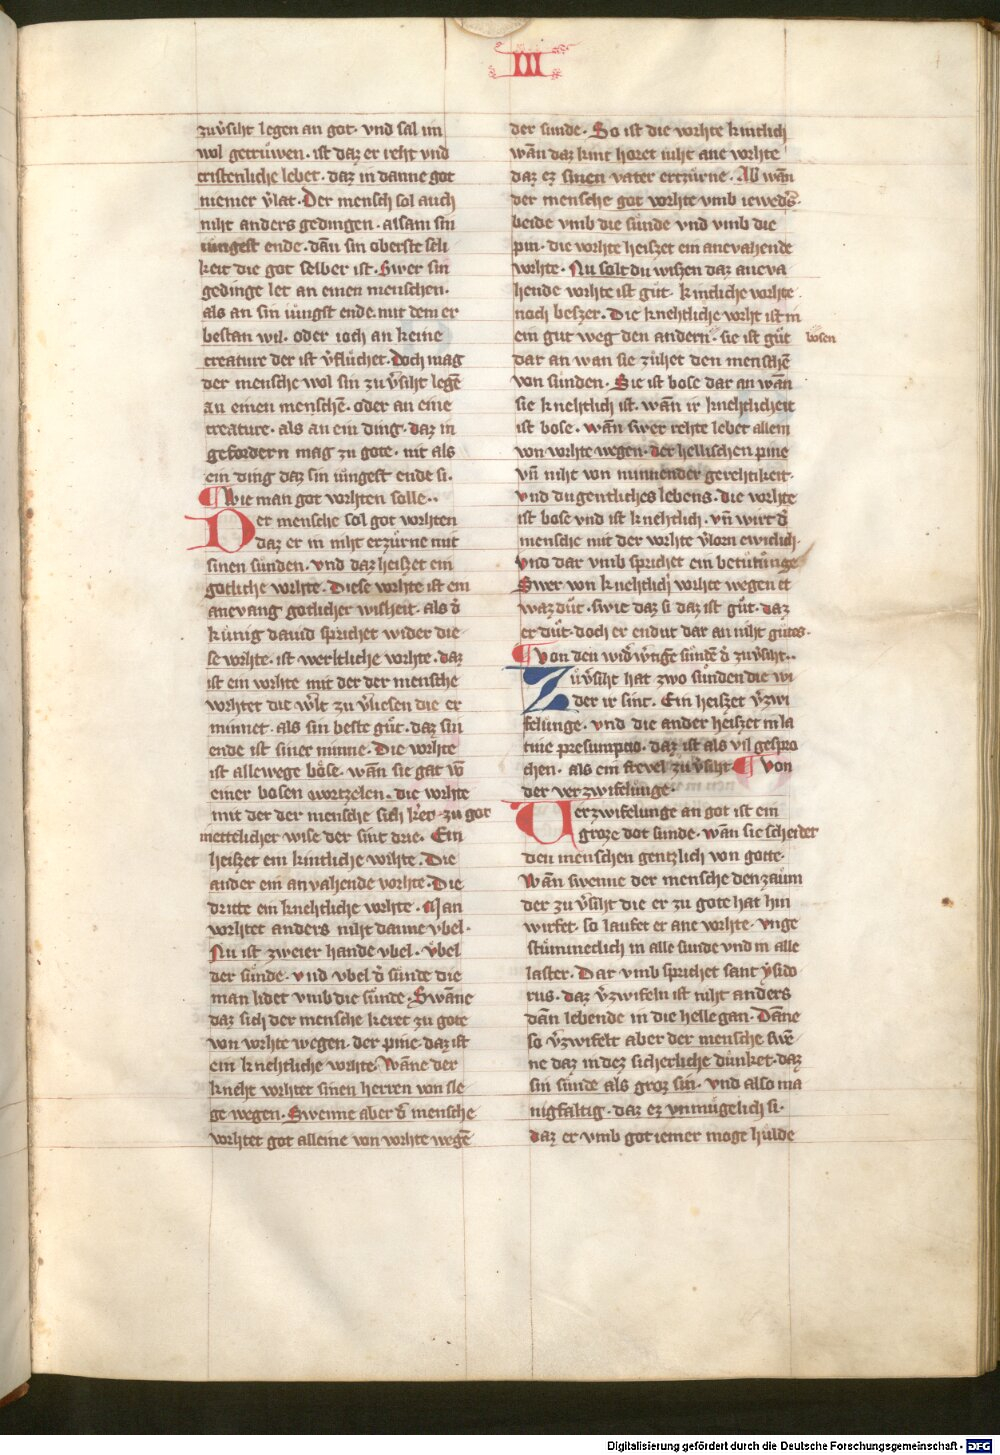 III
zuv̾siht legen an got· vnd sal im
wol getrůwen· ist daz er reht vnd
cristenliche lebet· daz in danne got
niemer v̾lat· Der mensch sol auch
niht anders gedingen· alsam sin
iungest ende· dān sin oberste seli
keit die got selber ist· Swer sin
gedinge let an einen menschen·
als an sin iůngst ende· mit dem er
bestan wil· oder ioch an keine
creature der ist v̾flůchet· Doch mag
der mensche wol sin zuv̾siht legē
an einen menschē· oder an eine
creature· als an ein ding· daz in
gefordern mag zu gote· nit als
ein ding daz sin iůngest ende si·
¶ Wie man got vorhten solle··
Der mensche sol got vorhten
daz er in niht erzůrne mit
sinen sůnden· vnd daz heiszet ein
gotliche vorhte· Diese vorhte ist ein
anevang gotlicher wisheit· als d̾
kůnig dauid sprichet wider die
se vorhte· ist werltliche vorhte· daz
ist ein vorhte mit der der mensche
vorhtet die w̾lt zu v̾liesen die er
minnet· als sin beste gůt· daz sin
ende ist siner minne· Die vorhte
ist allewege bőse· wān sie gat vō
einer bosen wortzelen· die vorhte
mit der der mensche sich ker· zu got
mettelicher wise der sint drie· Ein
heiszet ein kintliche vorhte· Die
ander ein anvahende vorhte· Die
dritte ein knehtliche vorhte· Man
vorhtet anders niht danne vbel·
Nu ist zweier hande vbel· vbel
der sůnde· vnd vbel d̾ sůnde die
man lidet vmb die sůnde· Swāne
daz sich der mensche keret zu gote
von vorhte wegen· der pine· daz ist
ein knehtliche vorhte· Wāne der
kneht vorhtet sinen herren von sle
ge wegen· Swenne aber d̾ mensche
vorhtet got alleine von vorhte wegē
der sunde· So ist die vorhte kintlich
wān daz kint horet niht ane vorhte
daz ez sinen vater erczurne· Ab wān
der mensche got vorhte vmb iewed̾s·
beide vmb die sůnde vnd vmb die
pin· die vorhte heiszet ein anevahende
vorhte· Nu solt du wiszen daz aneva
hende vorhte ist gut· kintliche vorhte
noch beszer· Die knehtliche vorht ist in
ein gut weg den andern· sie ist gůt bosen
dar an wan sie zůhet den menschē
von sunden· Sie ist bose dar an wān
sie knehtlich ist· wān ir knehtlicheit
ist bose· wān swer rehte lebet allein
von vorhte wegen· der hellischen pine
vn̄ niht von minnender gerehtikeit·
vnd dugentliches lebens· die vorhte
ist bose vnd ist knehtlich· vn̄ wirt d̾
mensche mit der vorhte v̾lorn ewiclich·
vnd dar vmb sprichet ein betůtůnge
Swer von knehtlich̾ vorhte wegen et
waz důt· swie daz si daz ist gůt· daz
er důt· doch er endut dar an niht gůtes·
¶ von den wid̾w̾tige sůndē d̾ zuv̾siht··
Zův̾siht hat zwo sůnden die wi
der ir sint· Ein heiszet v̾zwi
felunge· vnd die ander heiszet in la
tine presumpcio· daz ist als vil gespro
chen· als ein frevel zuv̾siht· ¶ von
der verzwifelunge·
Verzwifelunge an got ist ein
groze dot sunde· wān sie scheidet
den menschen gentzlich von gotte·
Wān swenne der mensche den zaům
der zuv̾siht die er zu gote hat hin
wirfet· so laufet er ane vorhte· vnge
stůmmeclich in alle sunde vnd in alle
laster· Dar vmb sprichet sant ysido
rus· daz v̾zwifeln ist niht anders
dān lebende in die helle gan· Dāne
so v̾zwifelt aber der mensche swē
ne daz in dez sicherliche důnket· daz
sin sůnde als groz sin· vnd also ma
nigfaltig· daz ez vnmůgelich si·
daz er vmb got iemer moge hulde
Digitalisierung gefördert durch die Deutsche Forschungsgemeinschaft - DFG